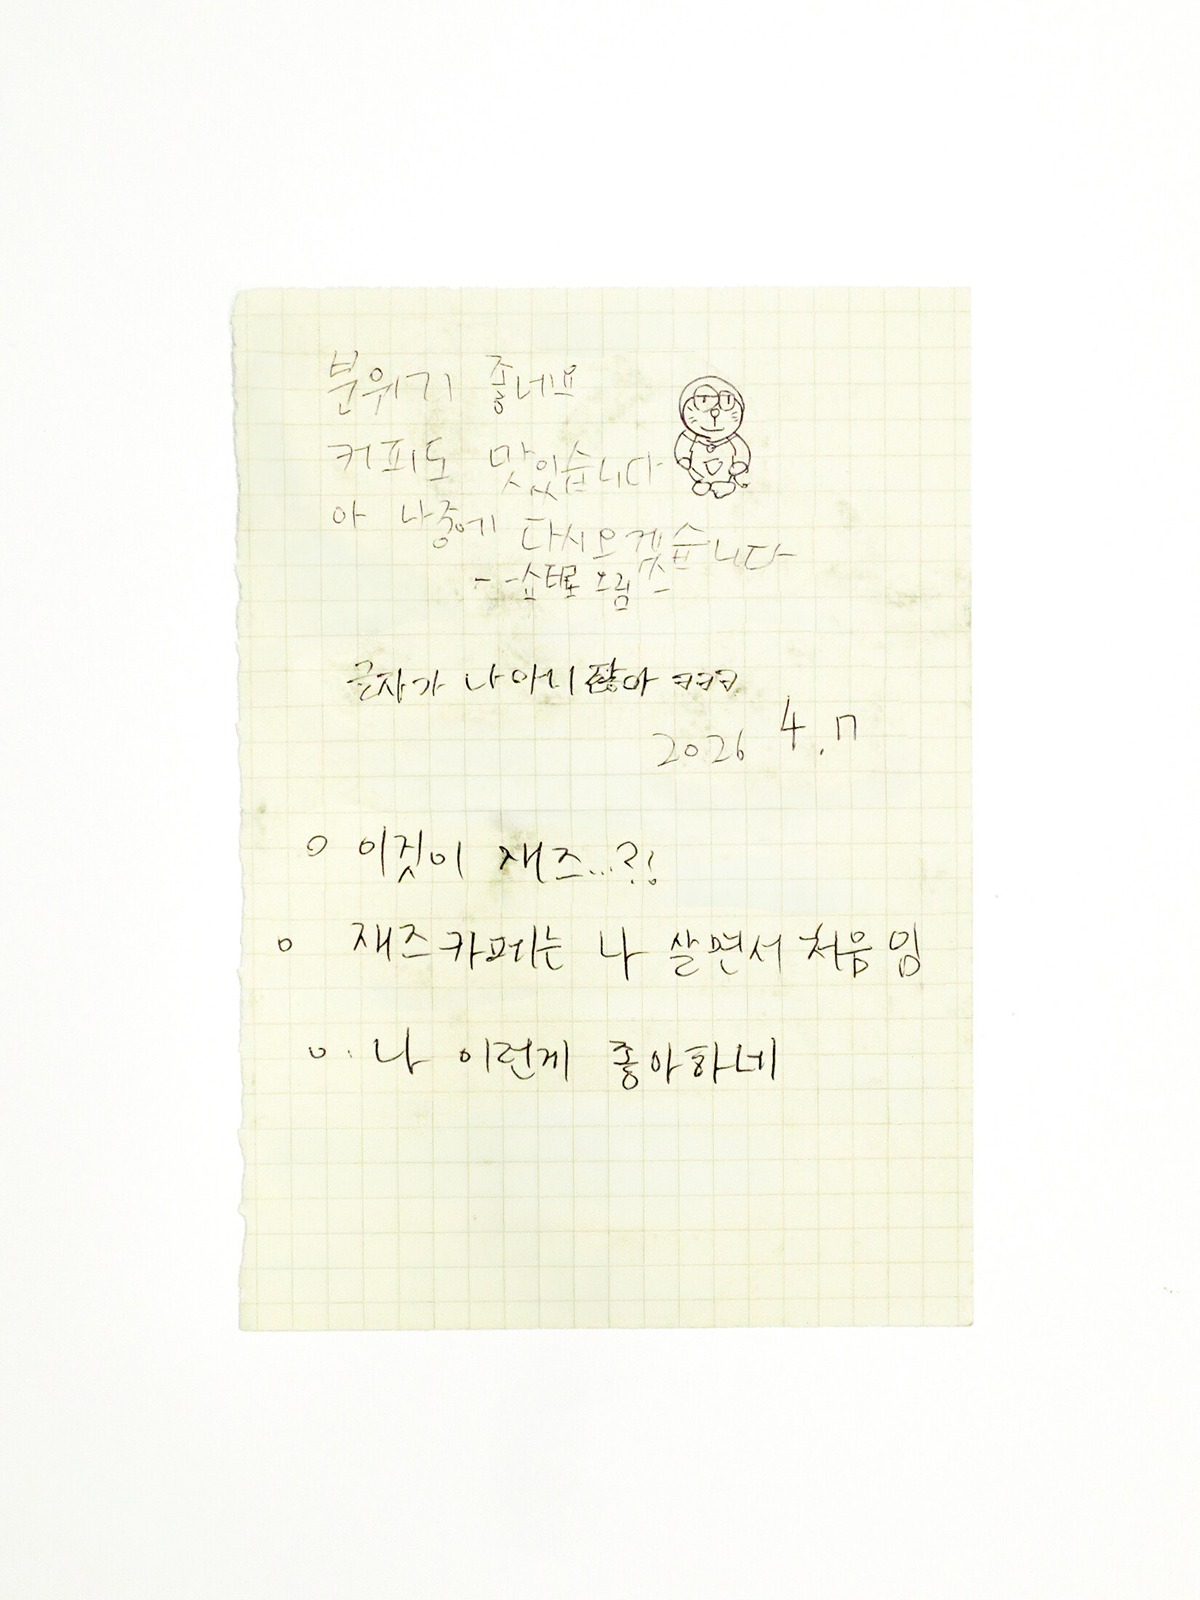 분위기 좋네요
커피도 맛있습니다
아 나중에 다시오겠습니다
글자가 나 아니 잖아 ㅋㅋㅋ
2026 4.17
이것이 재즈...?!
재즈카페는 나 살면서 처음임
나 이런게 좋아하네